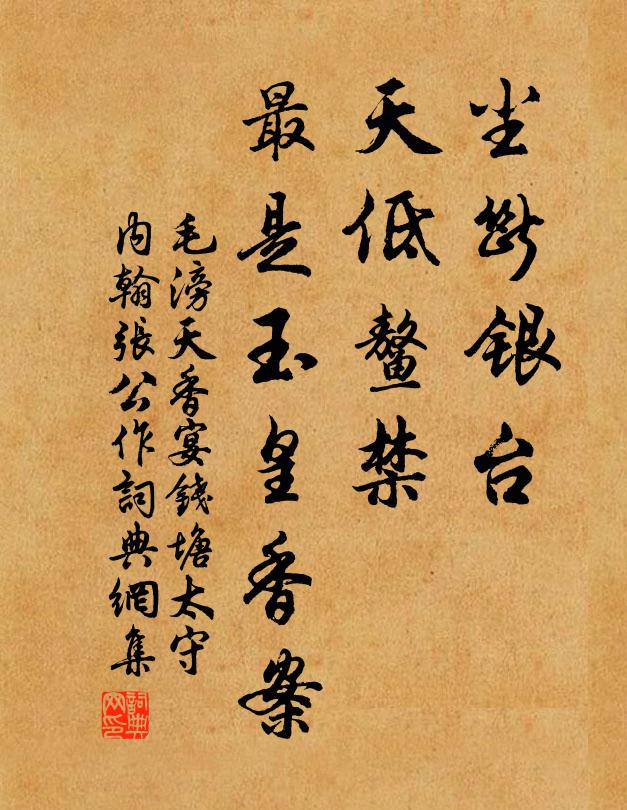 尘断银台
天低鳌禁
最是玉皇香案
毛滂天香宴錢塘太守
内翰張公作詞典網集
詞典网印